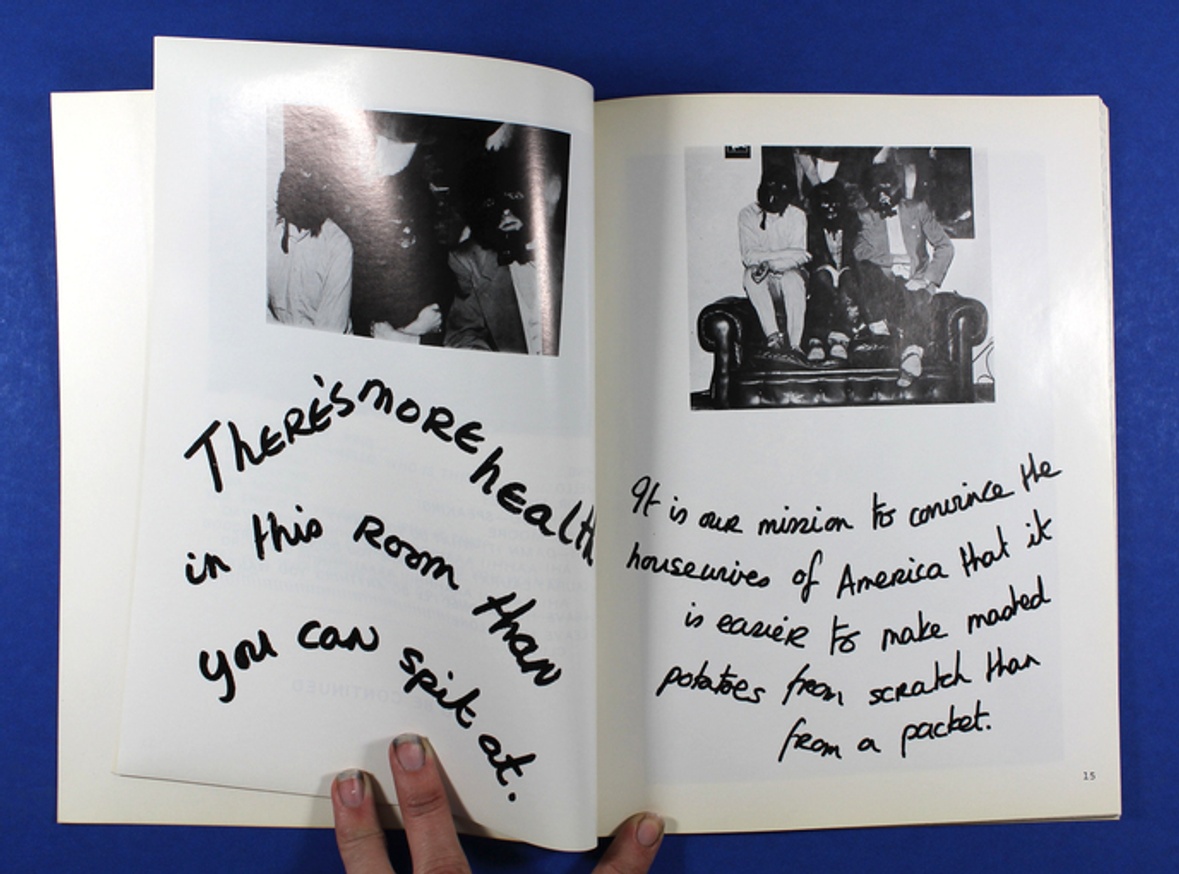 THERE'S MORE health
in this Room than
you can spit at.
It is our mission to convince the
housewives of America that it
is easier to make mashed
potatoes from scratch than
from a packet.
15